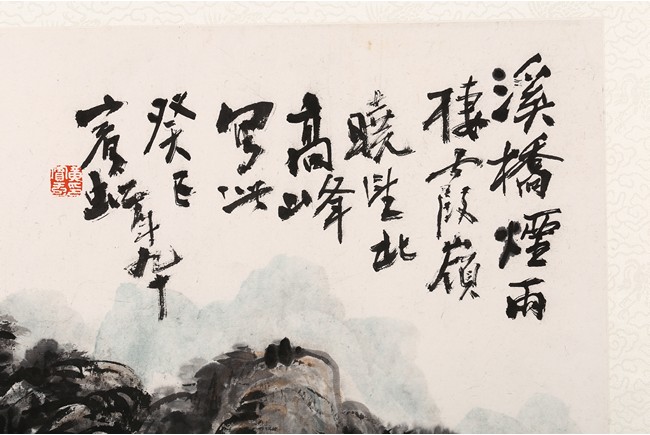 溪橋煙雨
棲霞嶺
曉望北
高峰
寫此
癸巳
賓虹年九十